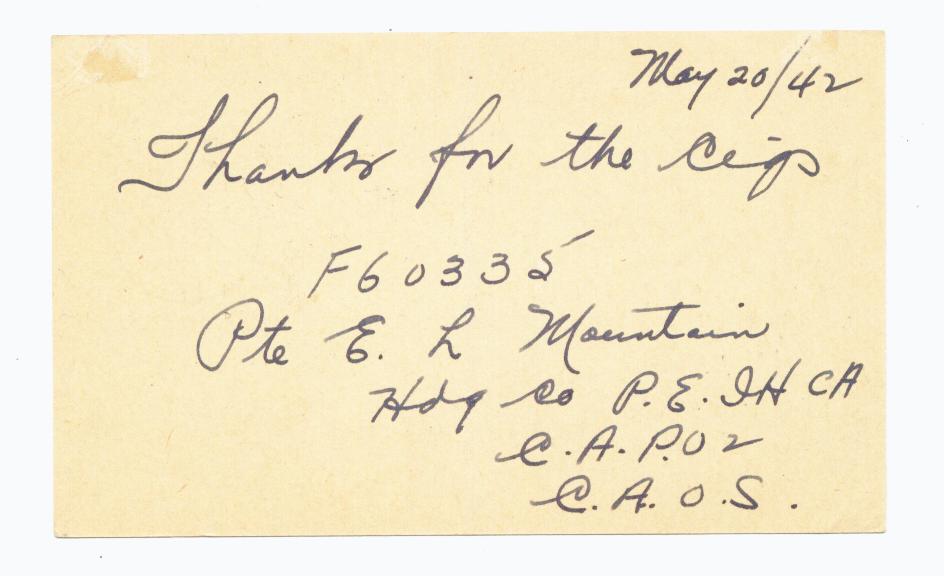 May 20/42
Thanks for the Cigs
F60335
Pte E. L Mountain
Hdq Co P.E.I H CA
C.A.P.O 2
C.A.O.S.